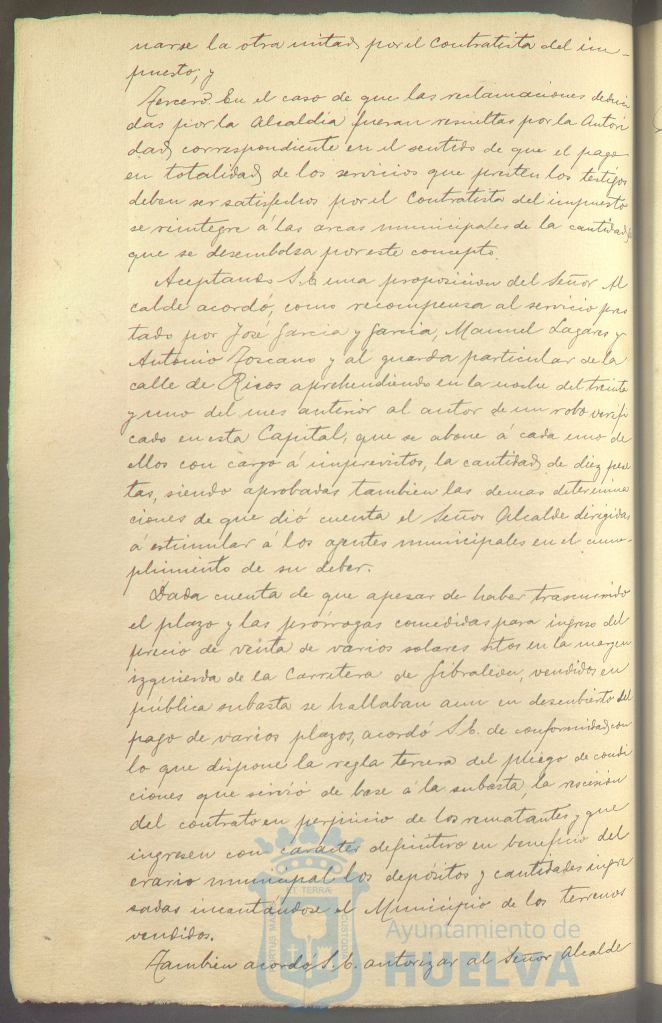 narse la otra mitad por el Contratista del im-
puesto; y
Tercero. En el caso de que las reclamaciones deduci
das por la Alcaldía fueran resueltas por la Autori
dad correspondiente en el sentido de que el pago
en totalidad de los servicios que presten los testigos
deben ser satisfechos por el Contratista del impuesto
se reintegre á las arcas municipales de la cantidad
que se desembolsa por este concepto.
Aceptando S.E. una proposicion del Señor Al
calde acordó, como recompensa al servicio pres
tado por José Garcia y Garcia, Manuel Lagares y
Antonio Toscano y al guarda particular de la
calle de Ricos aprehendiendo en la noche del treinta
y uno del mes anterior al autor de un robo verifi
cado en esta Capital, que se abone á cada uno de
ellos con cargo á imprevistos, la cantidad de diez pese
tas, siendo aprobadas tambien las demas determina
ciones de que dió cuenta el Señor Alcalde dirigidas
á estimular á los agentes municipales en el cum-
plimiento de su deber.
Dada cuenta de que apesar de haber trascurrido
el plazo y las prórrogas concedidas para ingreso del
precio de venta de varios solares sitos en la margen
izquierda de la Carretera de Gibraleon, vendidos en
pública subasta se hallaban aun en descubierto del
pago de varios plazos, acordó S.E. de conformidad con
lo que dispone la regla tercera del pliego de condi
ciones que sirvió de base á la subasta, la rescisión
del contrato en perjuicio de los rematantes y que
ingresen con carácter definitivo en beneficio del
erario municipal los depósitos y cantidades ingre
sadas incautandose el Municipio de los terrenos
vendidos.
Tambien acordó S.E. autorizar al Señor Alcalde
PORTUS MARIS ET TERRÆ CUSTODIA
Ayuntamiento de
HUELVA